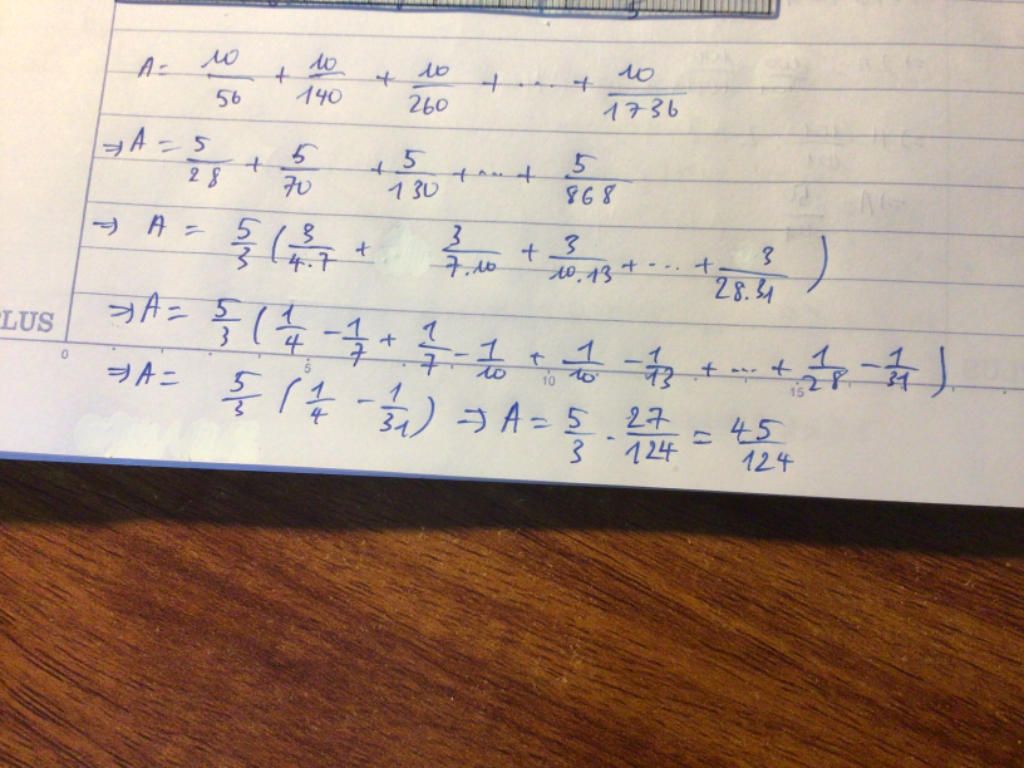 A = 10/56 + 10/140 + 10/260 + ... + 10/1736
⇒ A = 5/28 + 5/70 + 5/130 + ... + 5/868
⇒ A = 5/3 ( 3/4.7 + 3/7.10 + 3/10.13 + ... + 3/28.31 )
⇒ A = 5/3 ( 1/4 - 1/7 + 1/7 - 1/10 + 1/10 - 1/13 + ... + 1/28 - 1/31 )
PLUS
0 5 10 15
⇒ A = 5/3 ( 1/4 - 1/31 ) ⇒ A = 5/3 . 27/124 = 45/124